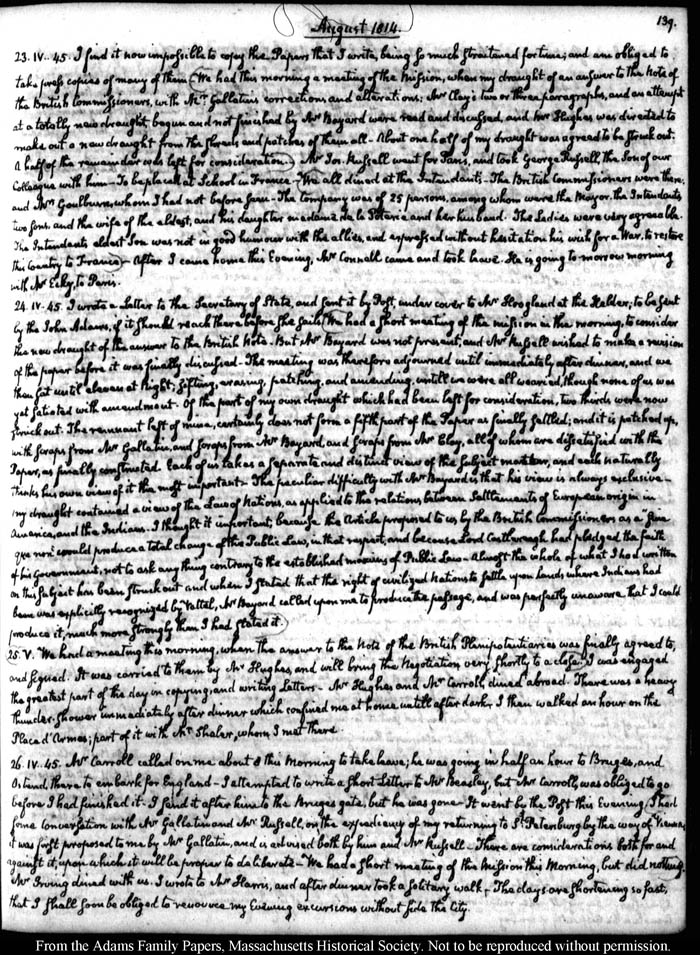 August 1814.
139.
23. IV. 45. I find it now impossible to copy the Papers that I write, being so much straitened for time; and am obliged to
take press copies of many of them. We had this morning a meeting of the Mission, when my draught of an answer to the Note of
the British Commissioners, with Mr Gallatin's corrections and alterations; Mr Clay's two or three paragraphs, and an attempt
at a totally new draught, begun and not finished by Mr Bayard were read and discussed, and Mr Hughes was directed to
make out a new draught from the shreds and patches of them all. About one half of my draught was agreed to be struck out;
A half of the remainder was left for consideration. Mr Jon. Russell went for Paris, and took George Russell, the Son of our
Colleague with him. To be placed at School in France. We all dined at the Intendant's. The British Commissioners were there;
and Mrs Goulburn, whom I had not before seen. The company was of 25 persons, among whom were the Mayor, the Intendant's
two sons, and the wife of the eldest, and his daughter Madame de la and her husband. The Ladies were very agreeable.
The Intendant's eldest Son was not in good humour with the allies, and expressed without hesitation his wish for a War, to restore
this Country to France. After I came home this Evening, Mr Connell came and took leave. He is going to morrow morning
with Mr to Paris.
24. IV. 45. I wrote a Letter to the Secretary of State, and sent it by Post, under cover to Mr Hoogland at the Helder; to be sent
by the John Adams, if it should reach there before she sails. We had a short meeting of the mission in the morning, to consider
the new draught of the answer to the British Note. But Mr Bayard was not present, and Mr Russell wished to make a revision
of the paper before it was finally discussed. The meeting was therefore adjourned until immediately after dinner, and we
then sat until eleven at Night; sifting, erasing, patching, and amending, until we were all wearied, though none of us was
yet satiated with amendment. Of the part of my own draught which had been left for consideration, two thirds were now
struck out. The remnant left of mine, certainly does not form a fifth part of the Paper as finally settled; and it is patched up,
with scraps from Mr Gallatin, and scraps from Mr Bayard, and scraps from Mr Clay, all of whom are dissatisfied with the
Paper, as finally constructed. Each of us takes a separate and distinct view of the subject matter, and each naturally
thinks his own view of it the most important. The peculiar difficulty with Mr Bayard is that his view is always exclusive.
My draught contained a view of the Law of Nations, as applied to the relations, between Settlements of European origin in
America, and the Indians. I thought it important, because the Article proposed to us, by the British Commissioners as a "sine
qua non" would produce a total change of the Public Law, in that respect, and because Lord Castlereagh had pledged the faith
of his Government, not to ask any thing contrary to the established maxims of Public Law. Almost the whole of what I had written
on this subject has been struck out and when I stated that the right of civilized Nations to settle upon lands where Indians had
been was explicitly recognized by Vattel, Mr Bayard called upon me to produce the passage, and was perfectly unaware that I could
produce it, much more strongly than I had stated it.
25. V. We had a meeting this morning, when the answer to the Note of the British Plenipotentiaries was finally agreed to,
and signed. It was carried to them by Mr Hughes and will bring the Negotiation very shortly to a close. I was engaged
the greatest part of the day in copying, and writing Letters. Mr Hughes and Mr Carroll, dined abroad. There was a heavy
thunder-shower immediately after dinner which confined me at home until after dark; I then walked an hour on the
Place d'Armes; part of it with Mr Shaler, whom I met there.
26. IV. 45. Mr Carroll called on me about 8 this Morning to take leave; he was going in half an hour to Bruges, and
Ostend, there to embark for England. I attempted to write a short Letter to Mr Beasley, but Mr Carroll, was obliged to go
before I had finished it. I send it after him to the Bruges gate, but he was gone. It went by the Post this Evening. I had
some conversation with Mr Gallatin and Mr Russell, on the expediency of my returning to St Petersburg by the way of Vienna;
it was first proposed to me by Mr Gallatin, and is advised both by him and Mr Russell. There are considerations both for and
against it, upon which it will be proper to deliberate. We had a short meeting of the Mission this Morning, but did nothing.
Mr Irving dined with us. I wrote to Mr Harris, and after dinner took a solitary walk. The days are shortening so fast,
that I shall soon be obliged to renounce my Evening excursions without side the City.
From the Adams Family Papers, Massachusetts Historical Society. Not to be reproduced without permission.